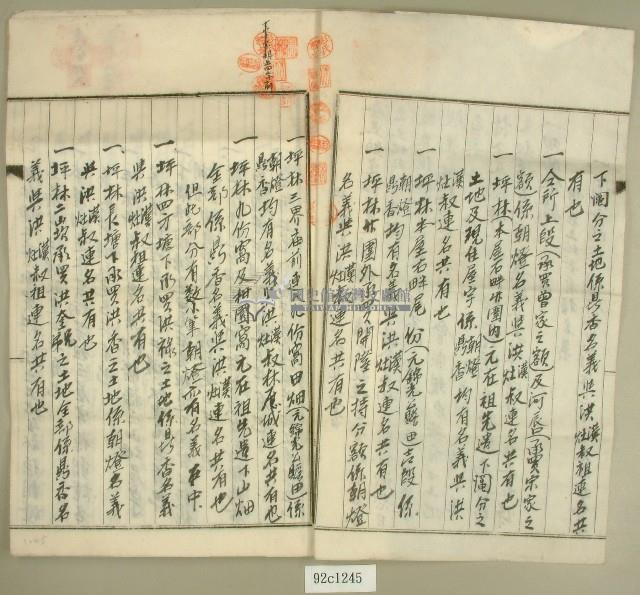 下鬮分之土地係鼎香名義與洪漢灶叔祖連名共
有也
一 仝所上段(承買曾家之額及河唇)(承買宋家之
額係朝燈名義與洪漢灶叔連名共有也
一 坪林本屋右畔竹圍內元在祖先遺下鬮分之
土地及現住屋宇係朝燈鼎香均有名義與洪
漢灶叔連名共有也
一 坪林本屋右畔尾 份(元錦光藍田)古段係
朝燈鼎香均有名義與洪漢灶叔連名共有也
一 坪林竹圍外 開陞之持分額係朝燈
名義與洪漢灶叔連名共有也
一 坪林三界庙前 份窩田畑(元錦光藍田係
朝燈鼎香均有名義與洪漢灶叔林應城連名共有也
一 坪林九份窩及柑園窩元在祖先遺下山畑
全部係鼎香名義與洪漢灶連名共有也
但此部分有数筆朝燈亦有名義在中
一 坪林四方塘下承買洪祿之土地係鼎香名義
與洪漢灶叔祖連名共有也
一 坪林長塘下承買洪香之土地係朝燈名義
與洪漢灶叔連名共有也
一 坪林 承買洪奎 之土地全部係鼎香名
義與洪漢灶叔祖連名共有也
92c1245